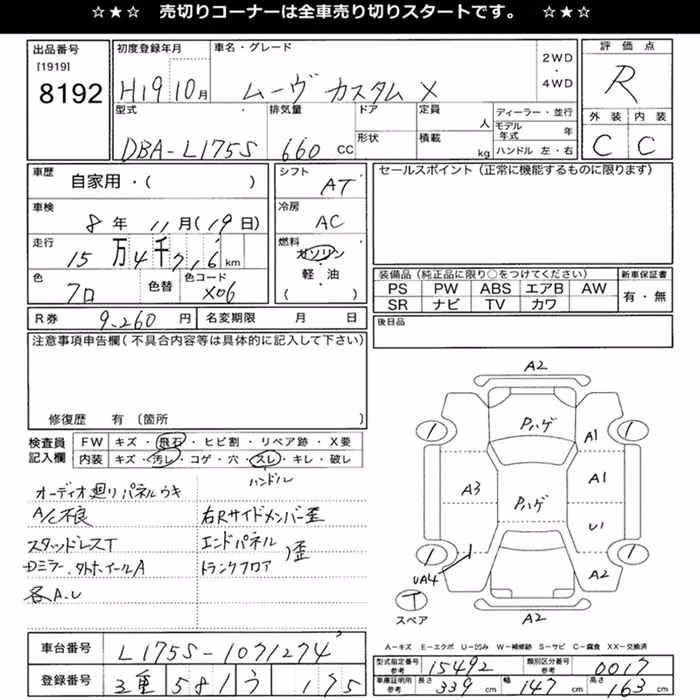 ☆★☆ 売切りコーナーは全車売り切りスタートです。 ☆★☆
出品番号
[1919]
8192
初度登録年月
H19 10月
車名・グレード
ムーヴ カスタム X
2WD
・
4WD
評価点
R
外装 内装
C C
型式
DBA-L175S
排気量
660 CC
ドア
形状
定員
人
積載
kg
ディーラー・並行
モデル年式 年
ハンドル 左・右
車歴
自家用・( )
車検
8年 11月(19日)
走行
15万4千716km
色
クロ
色替
色コード
X06
シフト
AT
冷房
AC
燃料
ガソリン
・
軽・油
( )
セールスポイント(正常に機能するものに限ります)
装備品(純正品に限り○をつけてください)
PS PW ABS エアB AW
SR ナビ TV カワ
新車保証書
有・無
後日品
R券 9,260円
名変期限 月 日
注意事項申告欄(不具合内容等は具体的に記入して下さい)
修復歴 有 〔箇所 〕
検査員
記入欄
FW キズ・飛石・ヒビ割・リペア跡・X要
内装 キズ・汚レ・コゲ・穴・スレ・キレ・破レ
ハンドル
オーディオ廻りパネルウキ
A/C不良
スタッドレスT
Dミラー.タホイールA
各A.U
右Rサイドメンバー歪
エンドパネル
トランクフロア
)歪
A2
Pハゲ
A1
A3
Pハゲ
A1
U1
UA4
A2
A2
1
1
1
1
T
スペア
A-キズ E-エクボ U-凹み W-補修跡 S-サビ C-腐食 XX-交換済
車台番号
L175S-1071274
登録番号
三重 581 う 175
型式指定番号
参考
15492
類別区分番号
参考
0017
車庫証明用
参考
長さ 339cm
幅 147cm
高さ 163cm